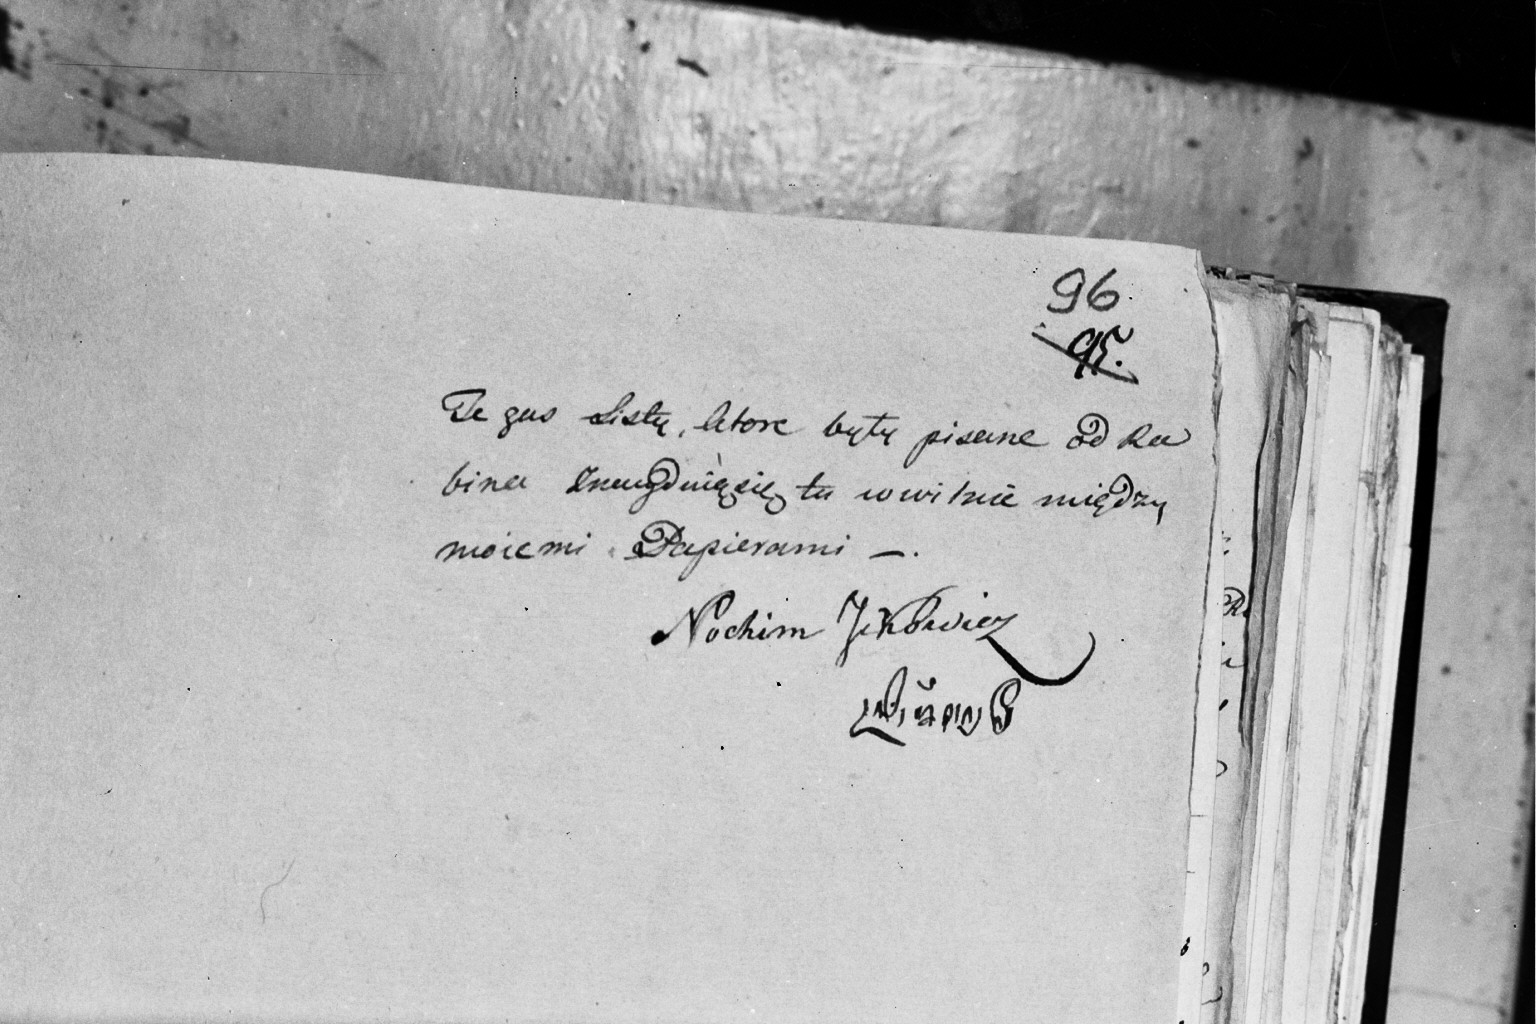 96
95.
Te zas Listy, ktore byty pisane od Ra
bina znayduią się tu w wilnie między
moiemi Papierami —.
Nochim Jckowicz